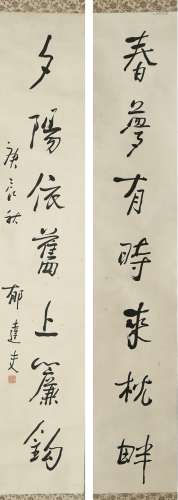 春夢有時來枕畔
夕陽依舊上簾鈎
庚辰秋
郁達夫